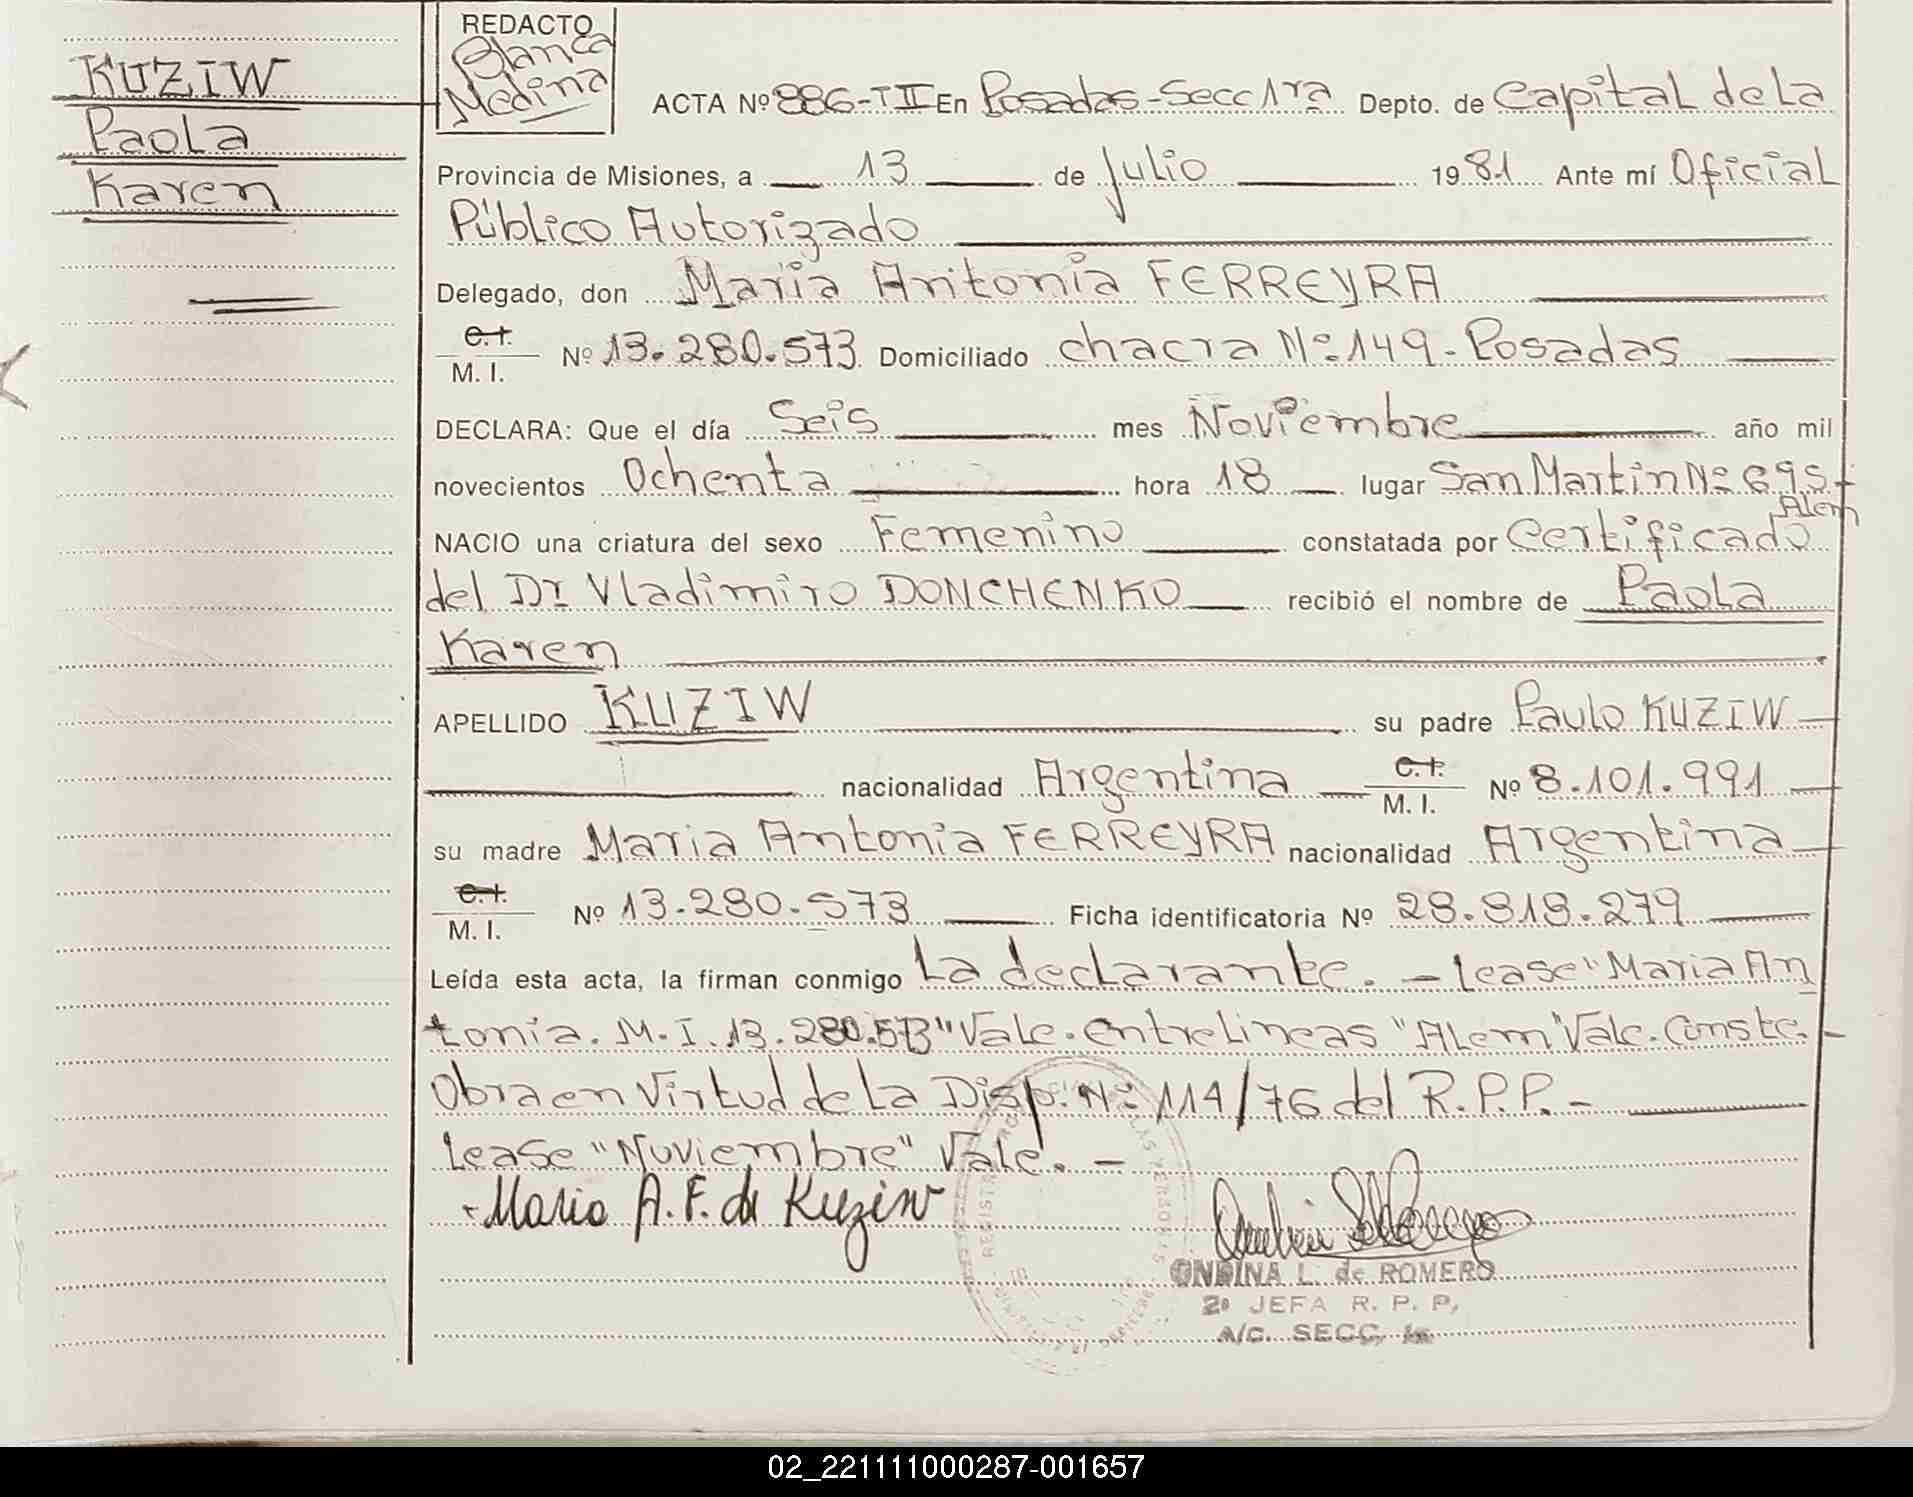 KUZIW
Paola
Karen
REDACTO
Blanca
Medina
ACTA Nº 886-TII En Posadas-Secc 1ra Depto. de Capital de La
Provincia de Misiones, a 13 de Julio 1981 Ante mí Oficial
Público Autorizado
Delegado, don Maria Antonia FERREYRA
C.I.
M. I. Nº 13.280.573 Domiciliado chacra Nº 149-Posadas
DECLARA: Que el día Seis mes Noviembre año mil
novecientos Ochenta hora 18 lugar San Martin Nº 695-
Alem
NACIO una criatura del sexo Femenino constatada por Certificado
del Dr Vladimiro DONCHENKO recibió el nombre de Paola
Karen
APELLIDO KUZIW su padre Paulo KUZIW
nacionalidad Argentina C.I. M. I. Nº 8.101.991
su madre Maria Antonia FERREYRA nacionalidad Argentina
C.I.
M. I. Nº 13.280.573 Ficha identificatoria Nº 28.818.279
Leída esta acta, la firman conmigo La declarante.- Lease "Maria An
tonia. M.I. 13.280.573" Vale. Entrelineas "Alem" Vale. Conste.-
Obra en Virtud de La Disp. Nº 114/76 del R.P.P.-
Lease "Noviembre" Vale.-
Maria A. F. de Kuziw
ONDINA L. de ROMERO
2º JEFA R. P. P.
A/C. SECC. 1a
02_221111000287-001657